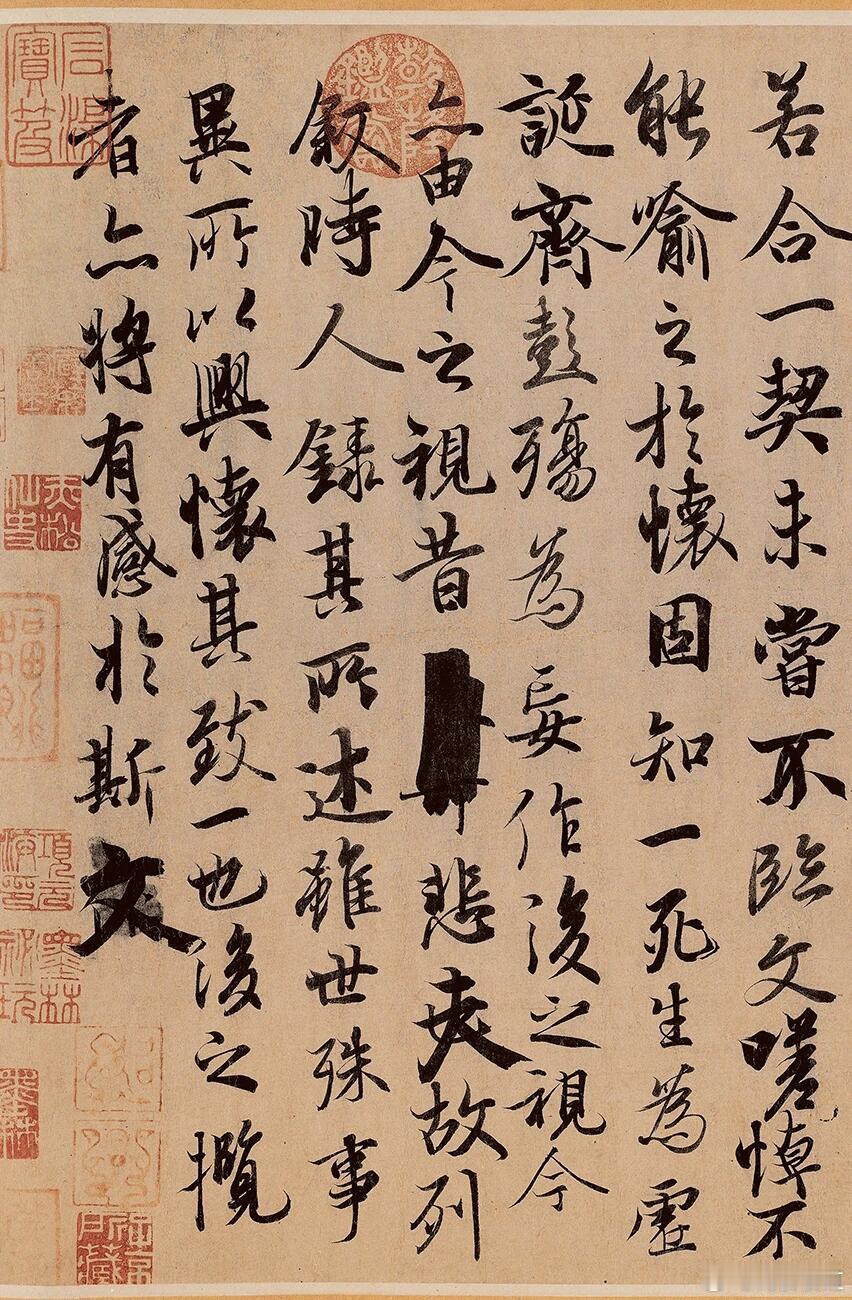 若合一契未嘗不臨文嗟悼不
能喻之於懷固知一死生為虛
誕齊彭殤為妄作後之視今
亦由今之視昔悲夫故列
敘時人錄其所述雖世殊事
異所以興懷其致一也後之攬
者亦將有感於斯文
乾隆鑑賞
項元汴印
墨林